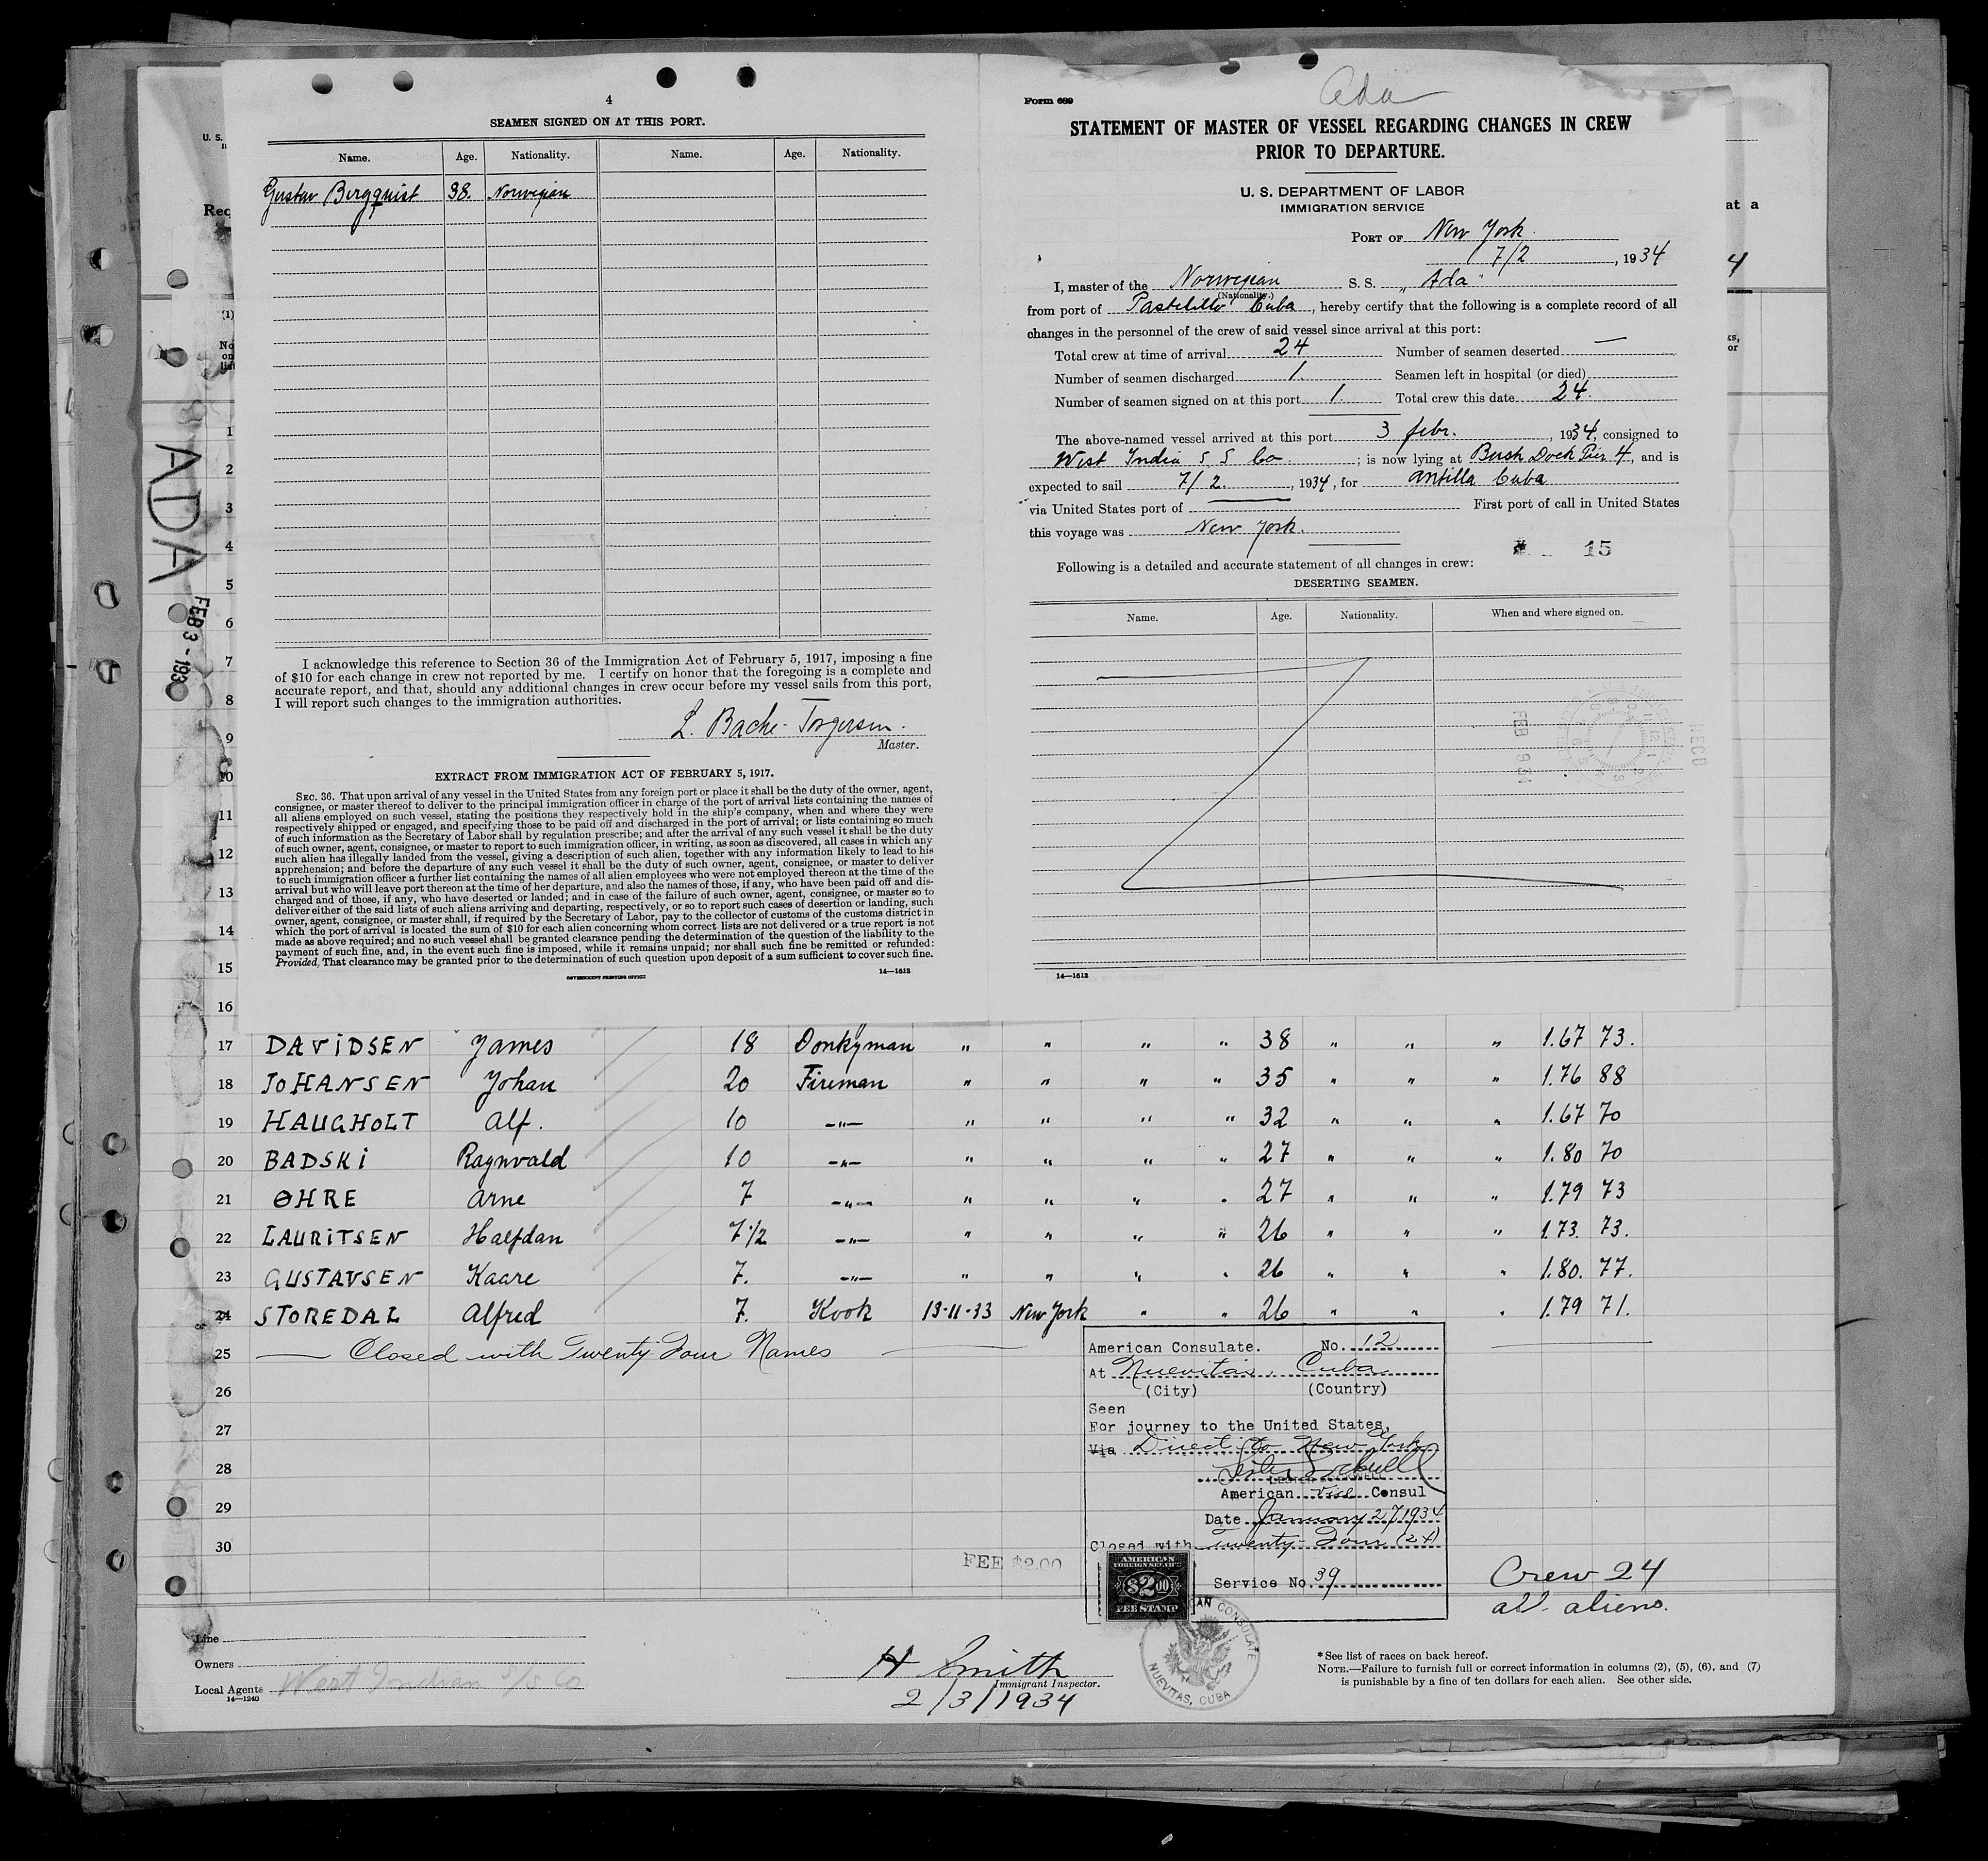 4
SEAMEN SIGNED ON AT THIS PORT.
Name. Age. Nationality. Name. Age. Nationality.
Gustav Bergquist 38. Norwegian
I acknowledge this reference to Section 36 of the Immigration Act of February 5, 1917, imposing a fine
of $10 for each change in crew not reported by me. I certify on honor that the foregoing is a complete and
accurate report, and that, should any additional changes in crew occur before my vessel sails from this port,
I will report such changes to the immigration authorities.
L. Bache-Torgersen.
Master.
EXTRACT FROM IMMIGRATION ACT OF FEBRUARY 5, 1917.
SEC. 36. That upon arrival of any vessel in the United States from any foreign port or place it shall be the duty of the owner, agent,
consignee, or master thereof to deliver to the principal immigration officer in charge of the port of arrival lists containing the names of
all aliens employed on such vessel, stating the positions they respectively hold in the ship's company, when and where they were
respectively shipped or engaged, and specifying those to be paid off and discharged in the port of arrival; or lists containing so much
of such information as the Secretary of Labor shall by regulation prescribe; and after the arrival of any such vessel it shall be the duty
of such owner, agent, consignee, or master to report to such immigration officer, in writing, as soon as discovered, all cases in which any
such alien has illegally landed from the vessel, giving a description of such alien, together with any information likely to lead to his
apprehension; and before the departure of any such vessel it shall be the duty of such owner, agent, consignee, or master to deliver
to such immigration officer a further list containing the names of all alien employees who were not employed thereon at the time of the
arrival but who will leave port thereon at the time of her departure, and also the names of those, if any, who have been paid off and dis-
charged and of those, if any, who have deserted or landed; and in case of the failure of such owner, agent, consignee, or master so to
deliver either of the said lists of such aliens arriving and departing, respectively, or so to report such cases of desertion or landing, such
owner, agent, consignee, or master shall, if required by the Secretary of Labor, pay to the collector of customs of the customs district in
which the port of arrival is located the sum of $10 for each alien concerning whom correct lists are not delivered or a true report is not
made as above required; and no such vessel shall be granted clearance pending the determination of the question of the liability to the
payment of such fine, and, in the event such fine is imposed, while it remains unpaid; nor shall such fine be remitted or refunded:
Provided, That clearance may be granted prior to the determination of such question upon deposit of a sum sufficient to cover such fine.
GOVERNMENT PRINTING OFFICE 14—1613
Ada
Form 689
STATEMENT OF MASTER OF VESSEL REGARDING CHANGES IN CREW
PRIOR TO DEPARTURE.
U. S. DEPARTMENT OF LABOR
IMMIGRATION SERVICE
PORT OF New York.
7/2, 1934
I, master of the Norwegian S. S. "Ada"
(Nationality.)
from port of Pastelillo Cuba, hereby certify that the following is a complete record of all
changes in the personnel of the crew of said vessel since arrival at this port:
Total crew at time of arrival 24 Number of seamen deserted —
Number of seamen discharged 1. Seamen left in hospital (or died)
Number of seamen signed on at this port 1 Total crew this date 24.
The above-named vessel arrived at this port 3 febr., 1934, consigned to
West India S S Co; is now lying at Bush Dock Pier 4, and is
expected to sail 7/2., 1934, for Antilla Cuba
via United States port of — First port of call in United States
this voyage was New York.
15
Following is a detailed and accurate statement of all changes in crew:
DESERTING SEAMEN.
Name. Age. Nationality. When and where signed on.
RECD
FEB 9 1934
14—1613
U. S.
Rec
at a
4
(1)
No
on
lis
or
ADA
FEB 3 - 193
1
2
3
4
5
6
7
8
9
10
11
12
13
14
15
16
17 DAVIDSEN James 18 Donkyman " " " " 38 " " " 1.67 73.
18 JOHANSEN Johan 20 Fireman " " " " 35 " " " 1.76 88
19 HAUGHOLT Alf. 10 -"- " " " " 32 " " " 1.67 70
20 BADSKI Ragnvald 10 -"- " " " " 27 " " " 1.80 70
21 ØHRE Arne 7 -"- " " " " 27 " " " 1.79 73
22 LAURITSEN Halfdan 7 1/2 -"- " " " " 26 " " " 1.73. 73.
23 GUSTAVSEN Kaare 7. -"- " " " " 26 " " " 1.80. 77.
24 STOREDAL Alfred 7. Kook 13-11-33 New York " " 26 " " " 1.79 71.
25 — Closed with Twenty Four Names —
26
27
28
29
30
American Consulate. No. 12
At Nuevitas, Cuba
(City) (Country)
Seen
For journey to the United States,
Via Direct to New York
American Vice Consul
Date January 27 1934
Closed with Twenty Four (24)
Service No. 39
FEE $2.00
AMERICAN
FOREIGN SERVICE
$2.00
FEE STAMP
AMERICAN CONSULATE
NUEVITAS, CUBA
Crew 24
all aliens.
Line
Owners
Local Agents West Indian S/S Co
14—1240
H Smith
Immigrant Inspector.
2/3/1934
*See list of races on back hereof.
NOTE.—Failure to furnish full or correct information in columns (2), (5), (6), and (7)
is punishable by a fine of ten dollars for each alien. See other side.